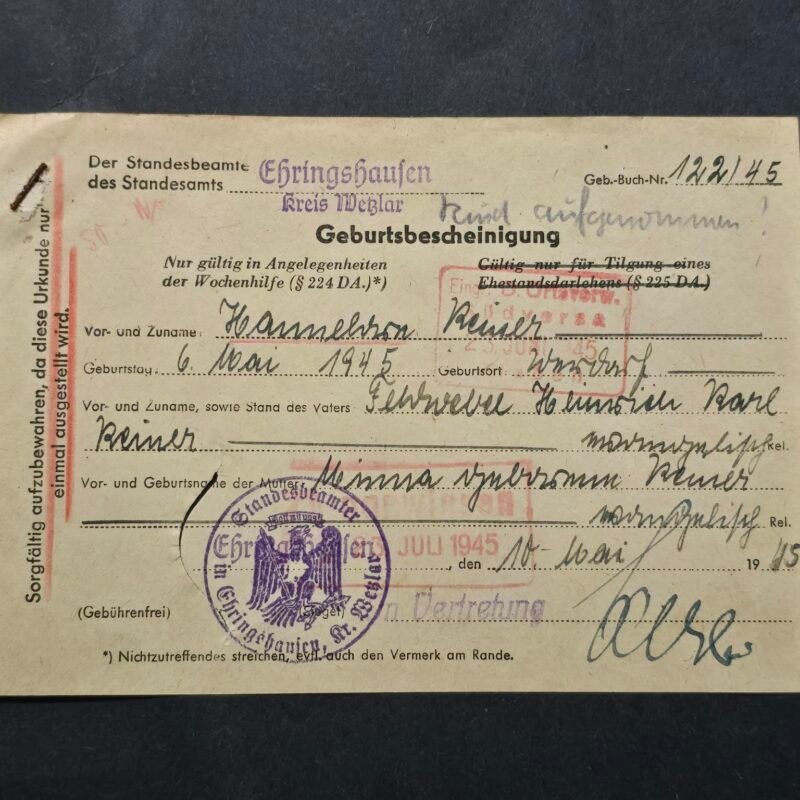 Der Standesbeamte
des Standesamts
Ehringshausen
Kreis Wetzlar
Geb.-Buch-Nr. 122/45
Kind aufgenommen!
Geburtsbescheinigung
Nur gültig in Angelegenheiten
der Wochenhilfe (§ 224 DA.)*)
Gültig nur für Tilgung eines
Ehestandsdarlehens (§ 225 DA.)
Vor- und Zuname: Hannelore Keiner
Geburtstag: 6. Mai 1945 Geburtsort Werdorf
Vor- und Zuname, sowie Stand des Vaters Feldwebel Heinrich Karl
Keiner evangelisch Rel.
Vor- und Geburtsname der Mutter: Minna geborene Keiner
evangelisch Rel.
Ehringshausen, den 10. Mai 1945
(Gebührenfrei) (Siegel) In Vertretung
*) Nichtzutreffendes streichen, evtl. auch den Vermerk am Rande.
Sorgfältig aufzubewahren, da diese Urkunde nur
einmal ausgestellt wird.
Standesbeamter
in Ehringshausen, Kr. Wetzlar
JULI 1945